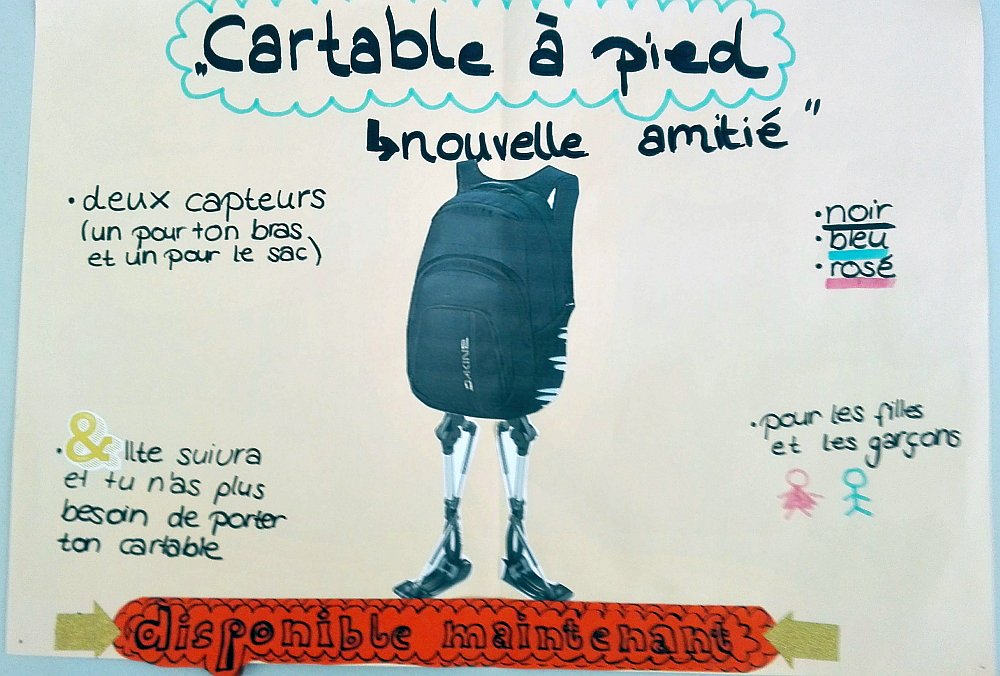 „Cartable à pied
↳nouvelle amitié"
• deux capteurs
(un pour ton bras
et un pour le sac)
• noir
• bleu
• rosé
DAKINE
• & Il te suivra
et tu n'as plus
besoin de porter
ton cartable
• pour les filles
et les garçons
disponible maintenant